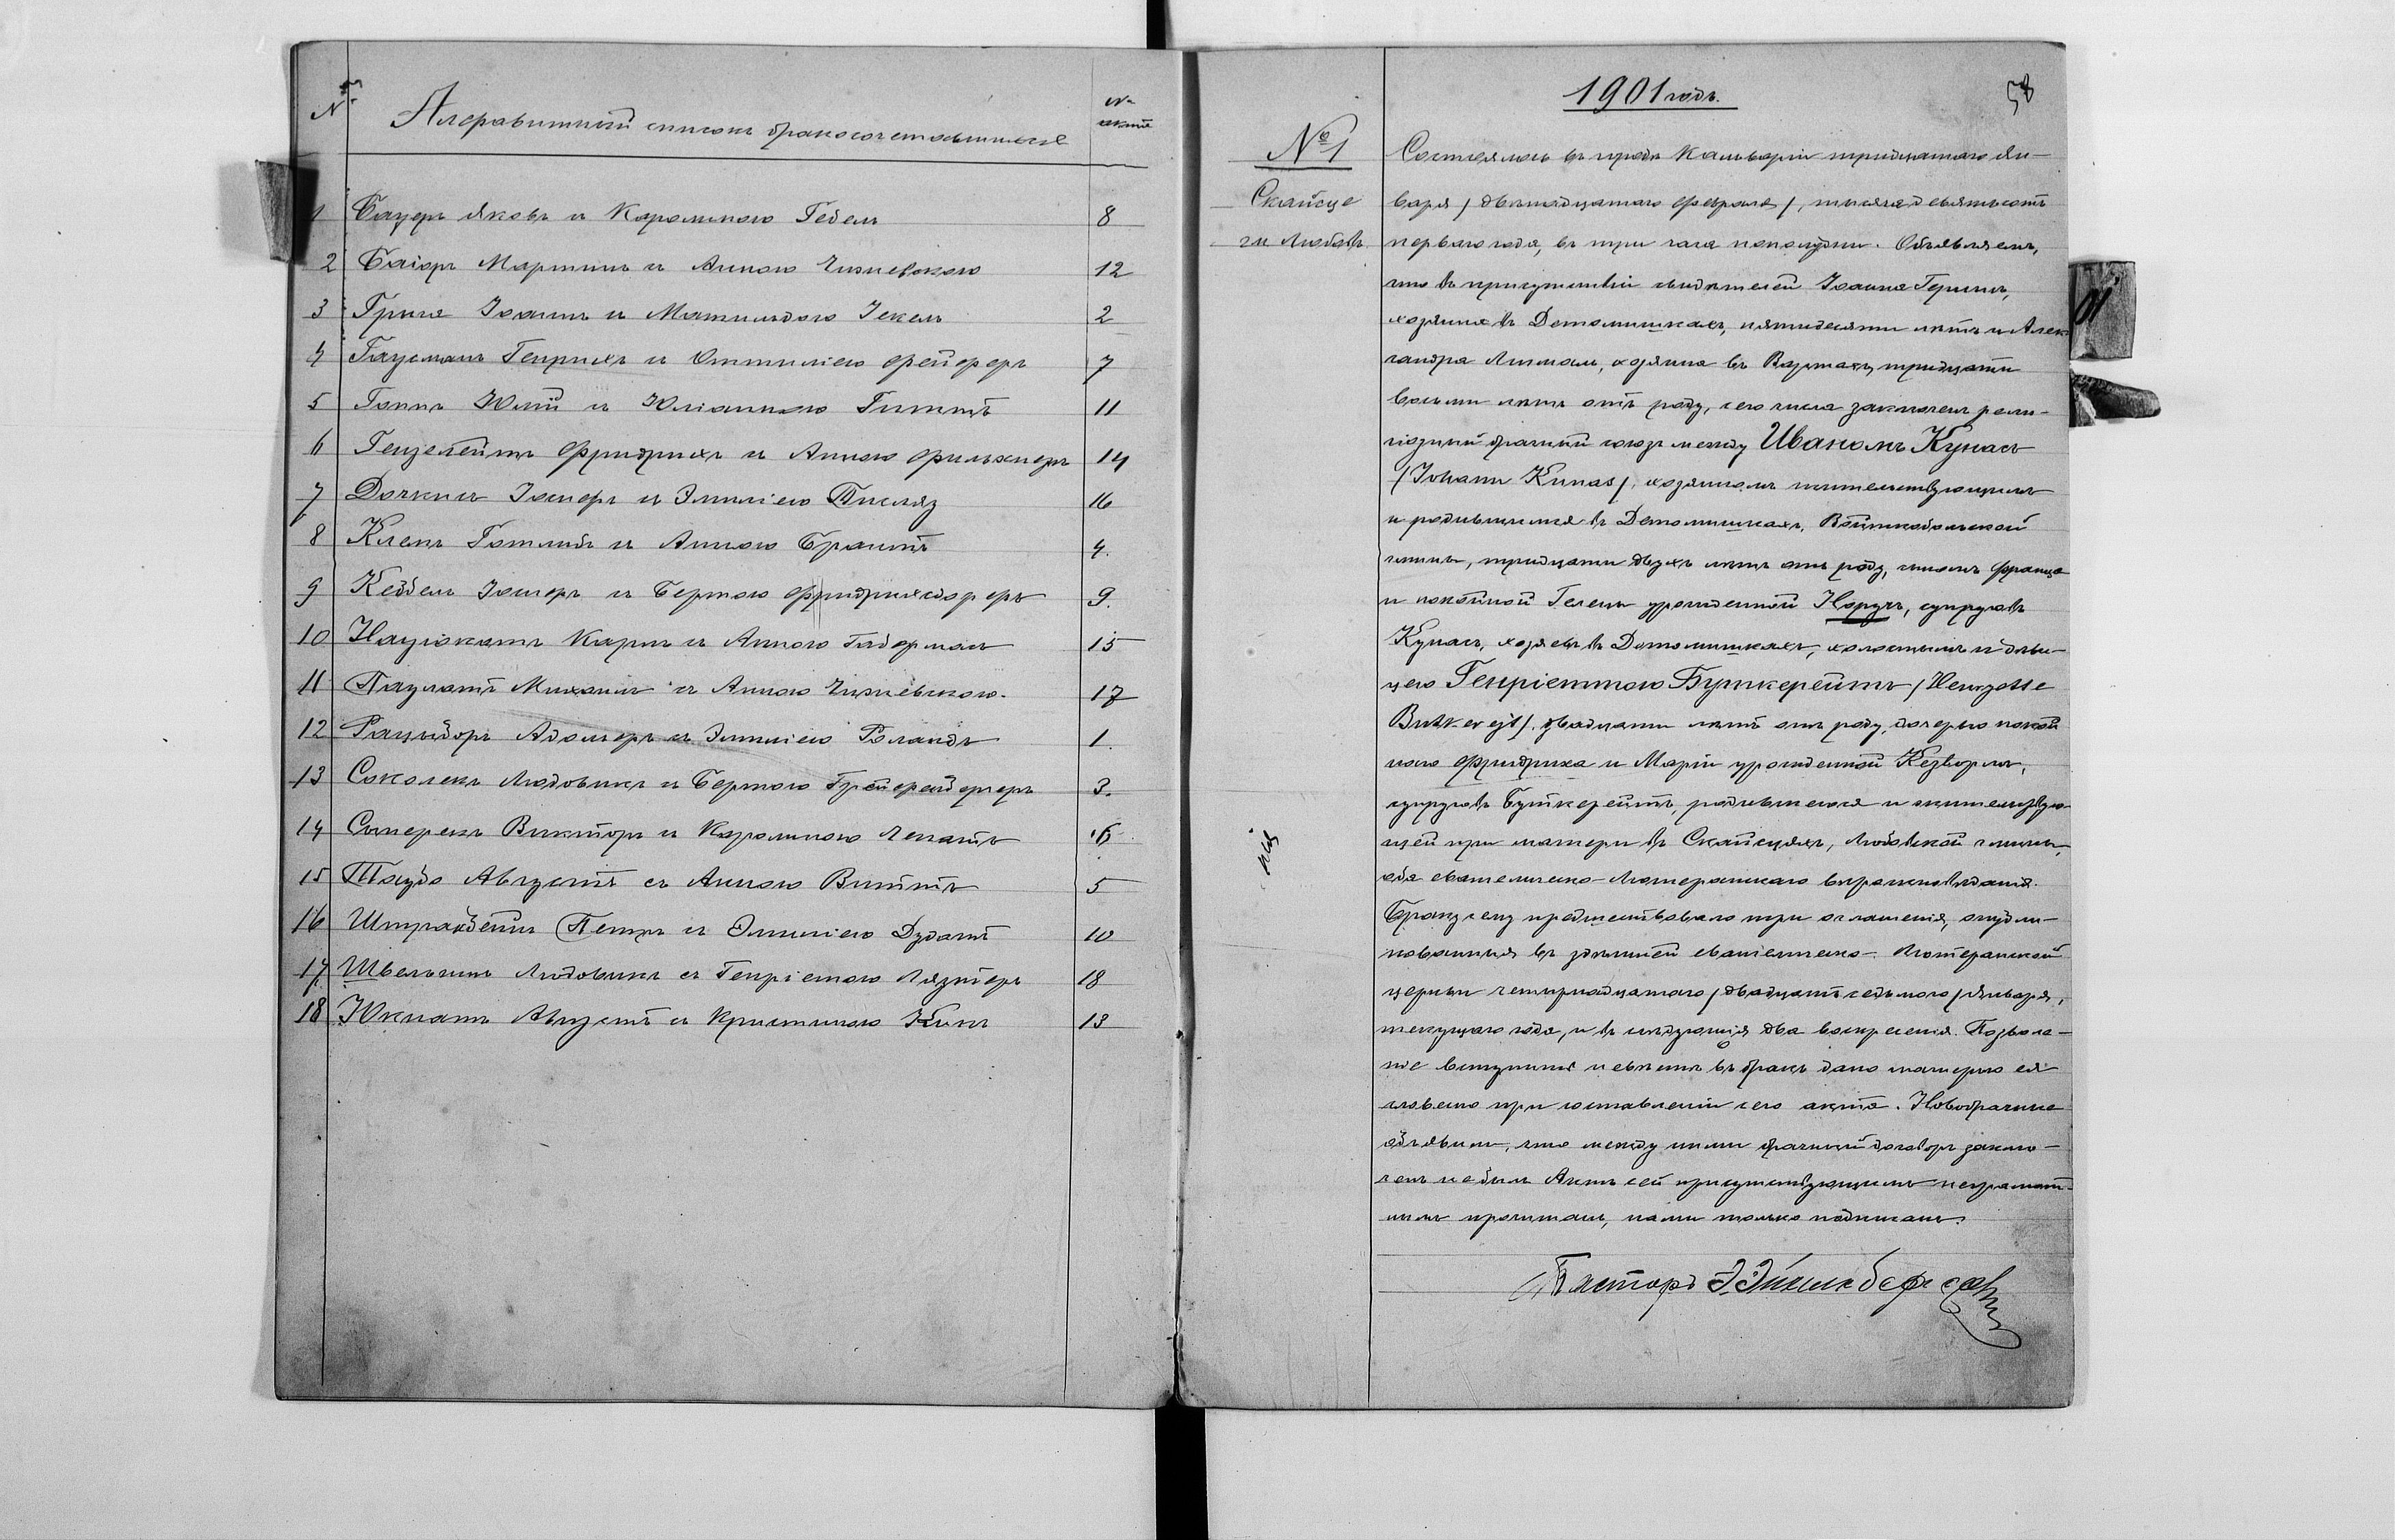 №
Алфавитный список бракосочетавшихся
№ акта
1 Бауер Яковъ и Каролиною Гебель 8
2 Баіоръ Мартинъ и Анною Чизневскою 12
3 Грига Іоаннъ и Матильдою Іекель 2
4 Гаусманъ Генрихъ и Оттиліею Фрейферъ 7
5 Гоппъ Юлій и Юліанною Гиттъ 11
6 Гензелейтъ Фридрихъ и Анною Фильхнеръ 14
7 Дочкисъ Іосифъ и Эмиліею Писляз 16
8 Клейнъ Готлибъ и Анною Брантъ 4.
9 Кеббель Іосифъ и Бертою Фридрихсдорфъ 9.
10 Науіокатъ Карлъ и Анною Габерманъ 15
11 Паулатъ Михаилъ съ Анною Чизневскою. 17
12 Адольфъ съ Эмиліею Роландъ 1.
13 Соколекъ Людовикъ и Бертою 3.
14 Викторъ и Каролиною 6
15 Тауба Августъ съ Анною Виттъ 5
16 Петръ и Эмиліею Дудатъ 10
17. Людовикъ съ Генріетою 18
18 Юкнатъ Августъ и Кристиною 13
1901 годъ.
58
№ 1
Скайсце
гм Любовъ
01
Состоялось въ городѣ Кальваріи тридцатаго Ян-
варя / двѣнадцатаго Февраля /, тысяча девятьсотъ
перваго года, въ три часа пополудни. Объявляемъ,
что въ присутствіи свидѣтелей Іоанна
хозяина въ Детомишкахъ, пятидесяти лѣтъ и Алек-
сандра Лиманъ, хозяина въ тридцати
восьми лѣтъ отъ роду, сего числа заключенъ рели-
гіозный брачный союзъ между Иваномъ Кунасъ
/Johann Kunas/, хозяиномъ жительствующимъ
и родившимся въ Детомишкахъ, Войткобольской
гмины, тридцати двухъ лѣтъ отъ роду, сыномъ Франца
и покойной Гелены урожденной Норусъ, супруговъ
Кунасъ, хозяевъ въ Детомишкахъ, холостымъ и дѣви-
цею Генріеттою Буткерейтъ /Henryette
Butkerejt/, двадцати лѣтъ отъ роду, дочерью покой-
наго Фридриха и Маріи урожденной
супруговъ Буткерейтъ, родившеюся и жительствую-
щей при матери въ Скайсцяхъ, Любовской гмины,
оба евангелическо-Лютеранскаго вѣроисповѣданія.
Браку сему предшествовало три оглашенія, опубли-
кованныя въ здѣшней евангелическо-Лютеранской
церкви четырнадцатаго / двадцать седьмаго / Января,
текущаго года, и въ слѣдующія два воскресенія. Позволе-
ніе вступить невѣстѣ въ бракъ дано матерью ея
словесно при составленіи сего акта. Новобрачные
объявили, что между ними брачный договоръ заклю-
ченъ не былъ. Актъ сей присутствующимъ неграмот-
нымъ прочитанъ, нами только подписанъ.
Пасторъ